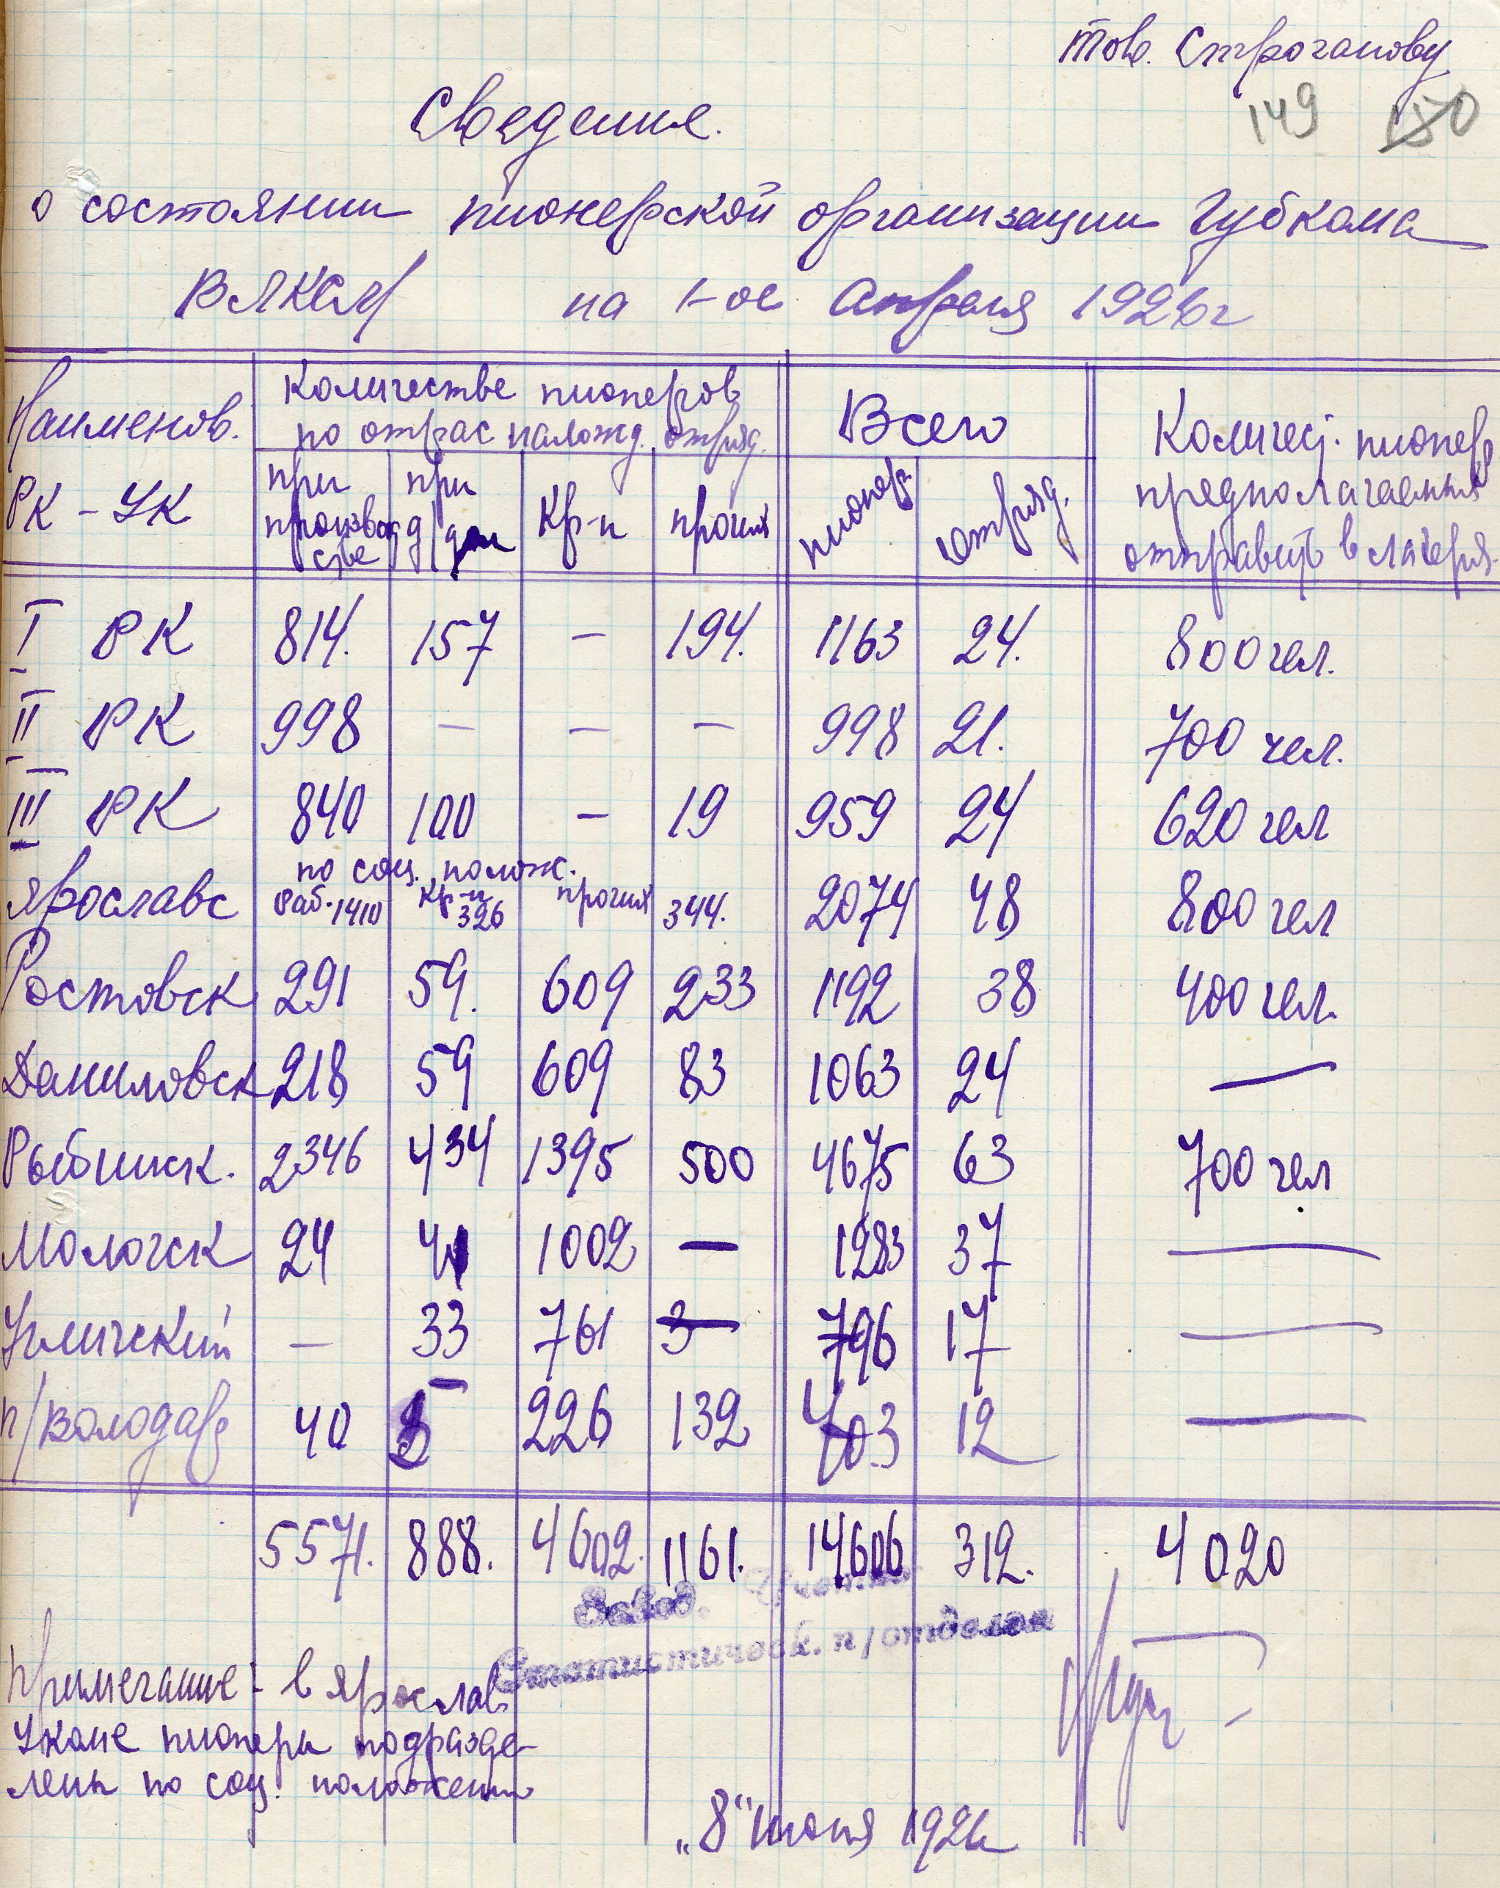 Тов. Строганову
149 150
Сведения.
о состоянии пионерской организации Губкома
ВЛКСМ на 1-ое Апреля 1926г
Наименов. РК - УК
Количестве пионеров
по отрас наложд. отряд.
при производстве
при д/дом
Кр-н
прочих
Всего
пионер.
отряд.
Количес. пионер
предполагаемых
отправить в лагеря.
I РК 814. 157 – 194. 1163 24. 800 чел.
II РК 998 – – – 998 21. 700 чел.
III РК 840 100 – 19 959 24 620 чел
по соц. полож.
Ярославс Раб. 1410 Кр-н 326 прочих 344. 2074 48 800 чел
Ростовск 291 59. 609 233 1192 38 400 чел.
Даниловск 218 59 609 83 1063 24 —
Рыбинск. 2346 434 1395 500 4675 63 700 чел
Мологск 24 41 1002 — 1283 37 —
Угличский – 33 761 3 796 17 —
п/Володар 40 5 226 132 403 12 —
5571. 888. 4602. 1161. 14606 312. 4020
Завод.
Статистическ. п/отделом
Примечание - в Ярослав
Укоме пионеры подразде-
лены по соц. положению
„8" июня 1926г